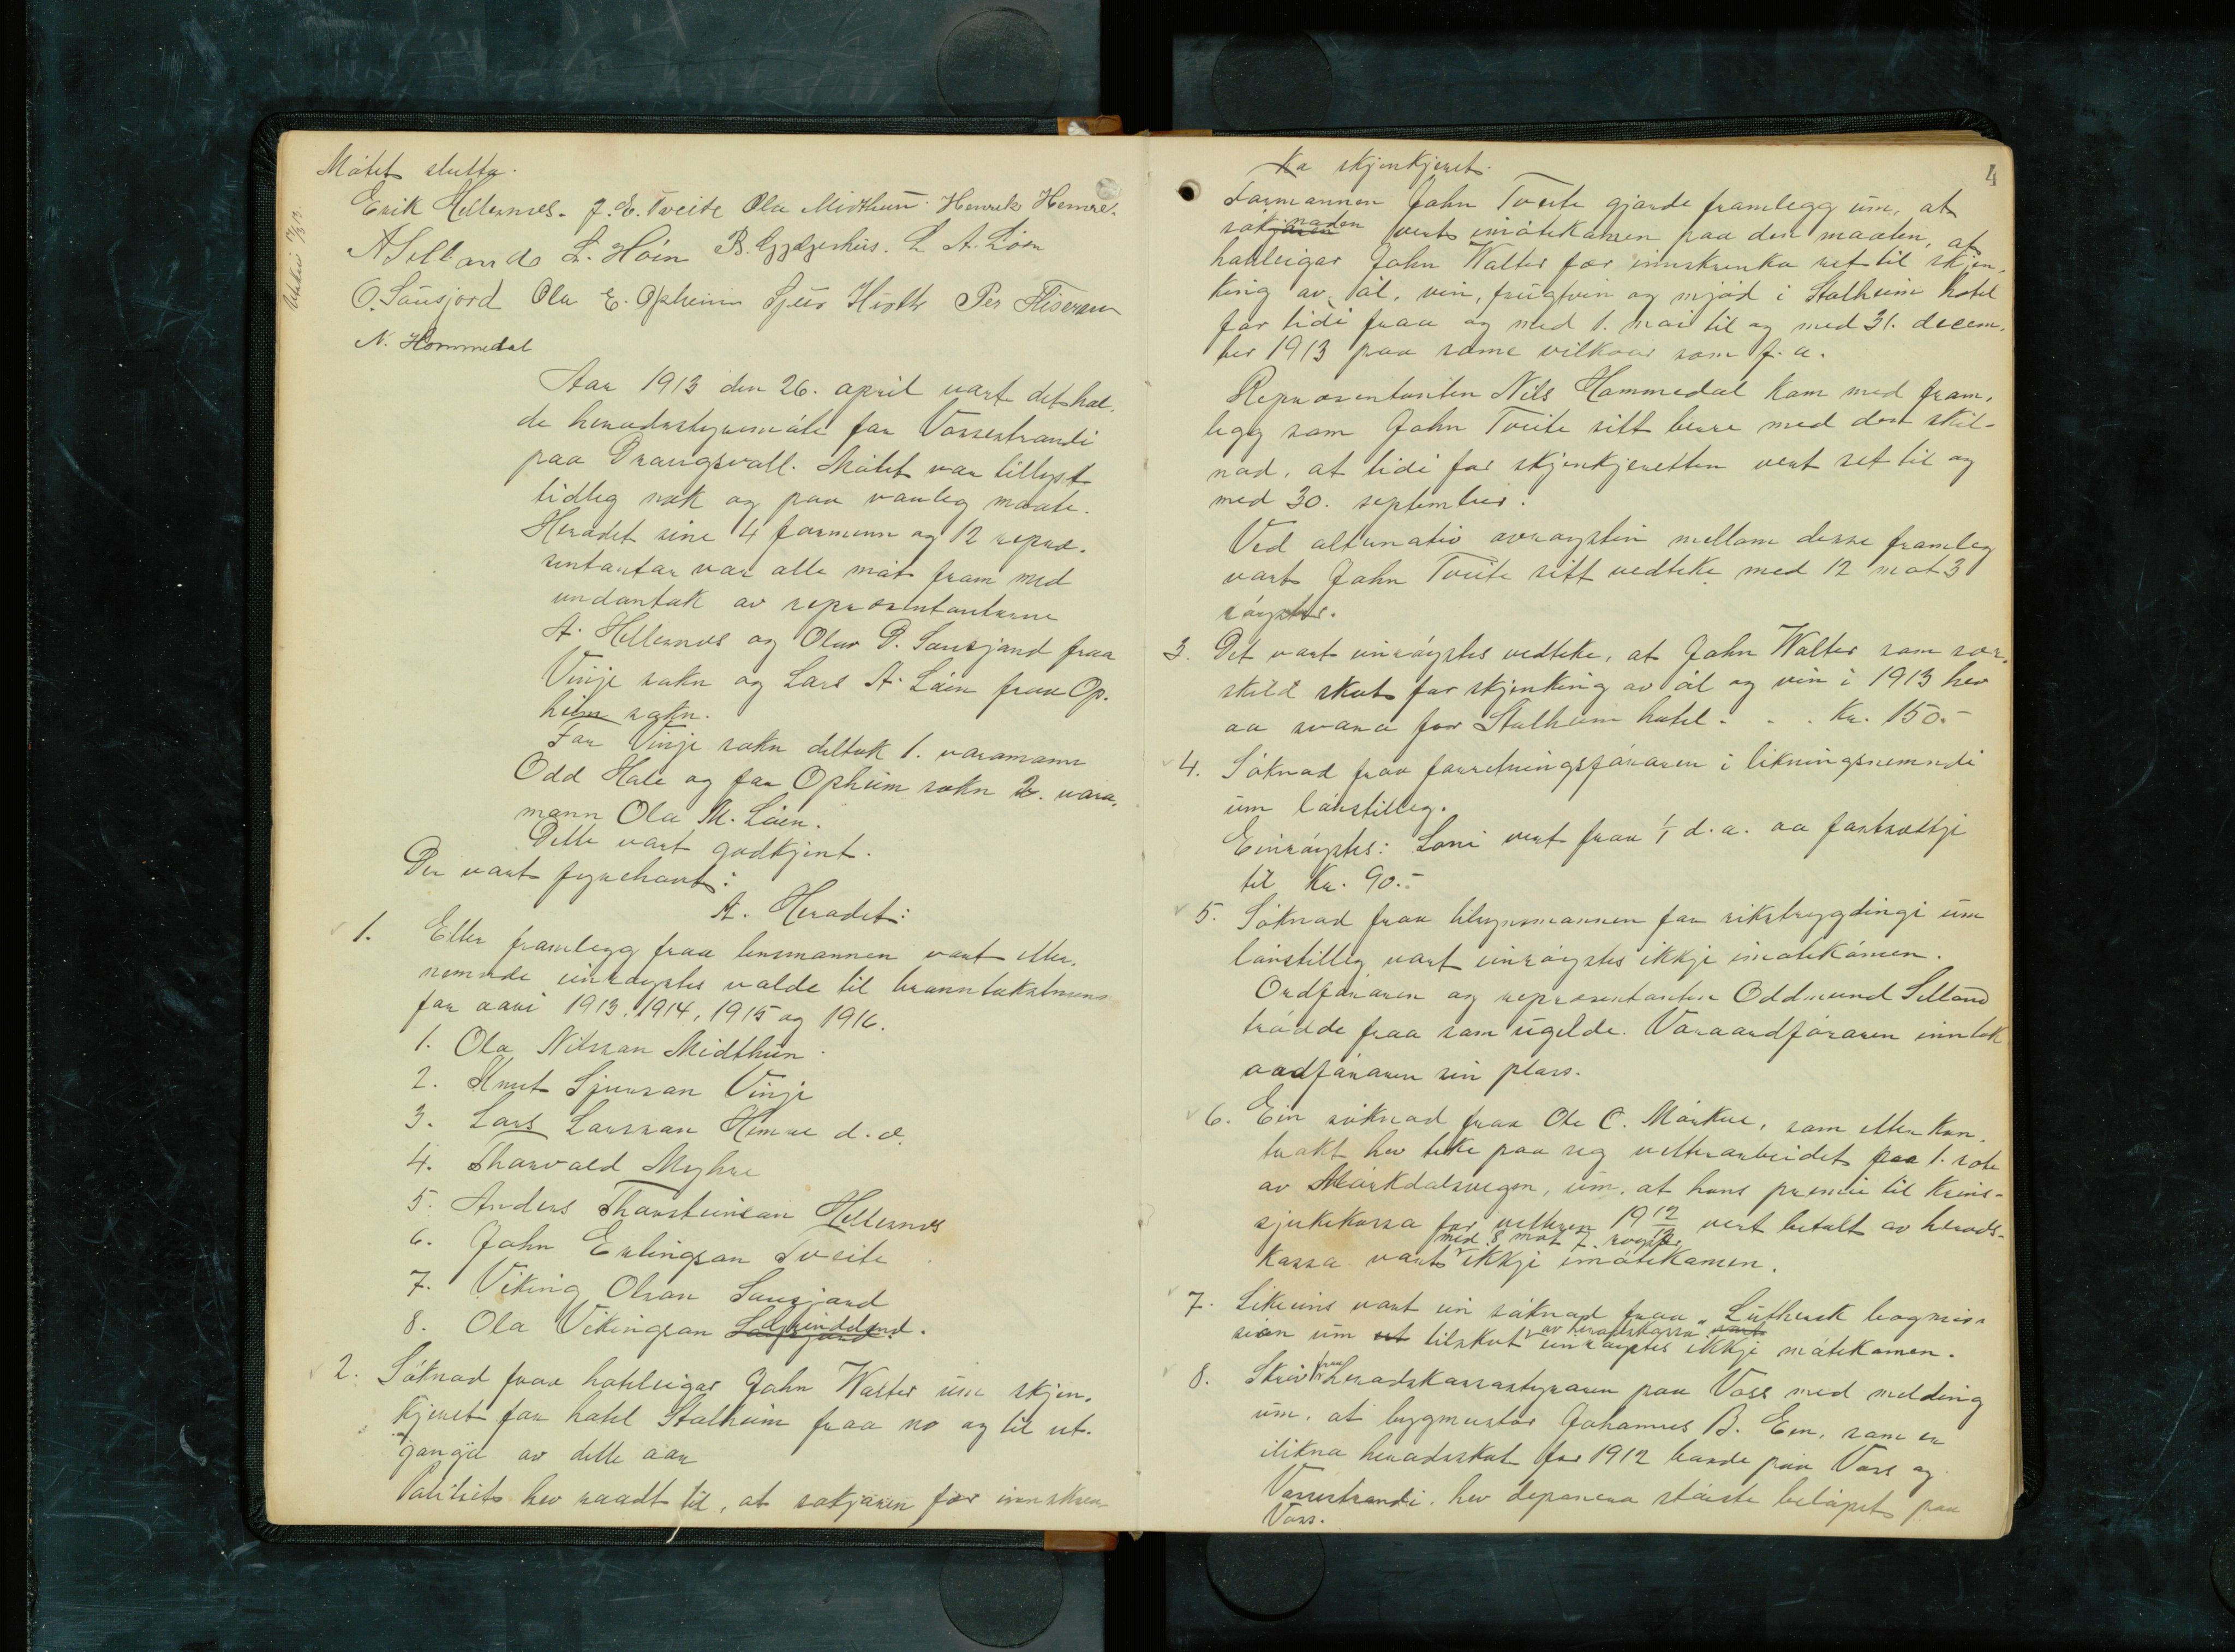 Mötet slutta.
Erik Hellernes. J. E. Tveite Ola Midthun. Henrik Hemre.
A Selland L. Höin B. Gjelgerhus. L. A. Löen
O. Sausjord Ola E. Opheim Sjur Hirth Per Fliseram
N. Hommedal
Aar 1913 den 26. april vart det hal-
de heradsstyremöte for Vossestrandi
paa Draugsvoll. Mötet var tillyst
tidleg nok og paa vanleg maate.
Heradet sine 4 formenn og 12 repræ-
sentantar var alle möt fram med
undantak av repræsentantarne
A. Hellernes og Olav D. Sausjord fraa
Vinje sokn og Lars A. Löen fraa Op-
heim sokn.
For Vinje sokn deltok 1. varamann
Odd Hale og for Opheim sokn 2. vara-
mann Ola M. Löen.
Dette vart godkjent.
Der vart fyrehavt:
A. Heradet:
1. Etter framlegg fraa lensmannen vart etter-
nemnde einröystes valde til branntakstmenn
for aari 1913, 1914, 1915 og 1916.
1. Ola Nilsson Midthun.
2. Knut Sjurson Vinje
3. Lars Larsson Hemre d. e.
4. Thorvald Myhre
5. Anders Thorsteinson Hellernes
6. John Erlingson Tveite
7. Viking Olson Sausjord
8. Ola Vikingson Helgindeland.
2. Söknad fraa hotelleigar John Walter um skjen-
kjeret for hotel Stalheim fraa no og til ut-
gangje av dette aar
Politiet hev raadt til, at sökjaren fær innskren-
4
ka skjenkjeret.
Formannen John Tveite gjorde framlegg um, at
söknaden vert imötekomen paa den maaten, at
hotelleigar John Walter fær innskrenka ret til skjen-
king av öl, vin, frugtvin og mjöd i Stalheim hotel
for tidi fraa og med 1. mai til og med 31. decem-
ber 1913 paa same vilkaar som f. a.
Repræsentanten Nils Hommedal kom med fram-
legg som John Tveite sitt berre med den skil-
nad, at tidi for skjenkjeretten vert set til og
med 30. september.
Ved alternativ avröysting mellom desse framlegg
vart John Tveite sitt vedteke med 12 mot 3
röyster.
3. Det vart einröystes vedteke, at John Walter som sær-
skild skat for skjenking av öl og vin i 1913 hev
aa svara for Stalheim hotel . . . Kr. 150.-
4. Söknad fraa forretningsföraren i likningsnemndi
um lönstillegg.
Einröystes: Löni vert fraa 1/1 d. a. aa fastsættje
til Kr. 90.-
5. Söknad fraa tilsynsmannen for rikstrygdingi um
lönstillegg vart einröystes ikkje imötekomen.
Ordföraren og repræsentanten Oddmund Selland
trödde fraa som ugilde. Varaordföraren inntok
ordföraren sin plass.
6. Ein söknad fraa Ole C. Mörkve, som etter kon-
trakt hev teke paa seg vetterarbeidet paa 1. rote
av Mörkdalsvegen, um, at hans premie til Krins-
sjukekassa for vetteren 1912/13 vert betalt av herads-
kassa vart med 8 mot 7 röyster ikkje imötekomen.
7. Likeeins vart ein söknad fraa "Luthersk bogmis-
sion um tilskot av heradskassa einröystes ikkje mötekomen.
8. Skriv fraa heradskassastyraren paa Voss med melding
um, at bygmester Johannes B. Een, som er
ilikna heradsskat for 1912 baade paa Voss og
Vossestrandi, hev deponera störste belöpet paa
Voss.